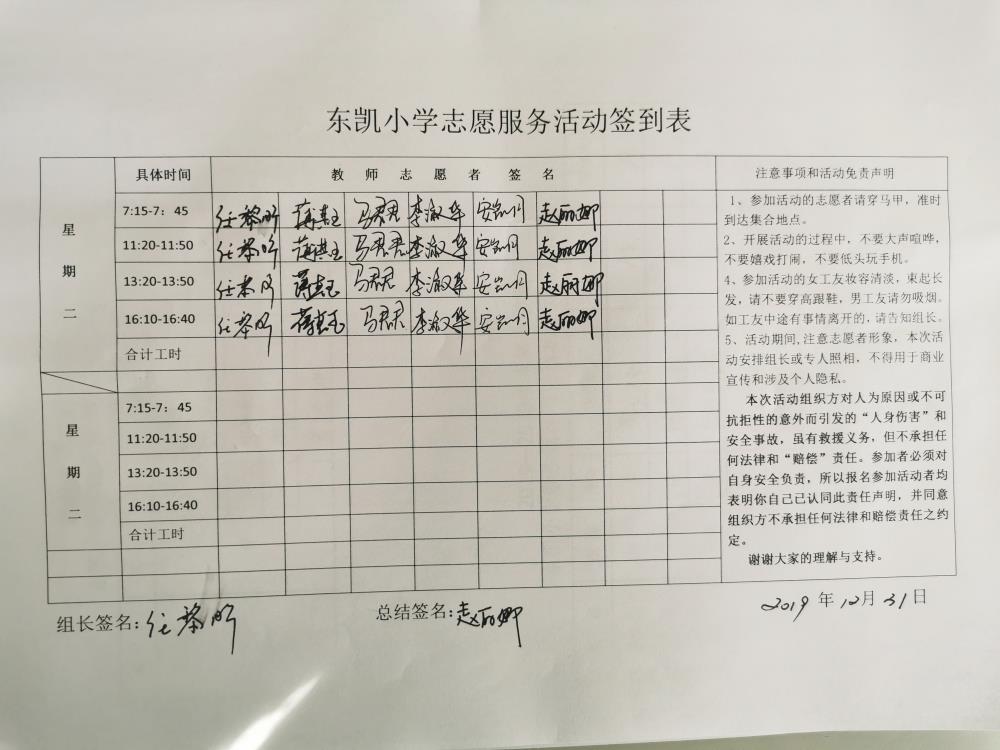 东凯小学志愿服务活动签到表
具体时间 教 师 志 愿 者 签 名 注意事项和活动免责声明
星期二
7:15-7：45 任黎昕 李淑华 赵丽娜
11:20-11:50 任黎昕 李淑华 赵丽娜
13:20-13:50 李淑华 赵丽娜
16:10-16:40 任黎昕 李淑华 赵丽娜
合计工时
星期二
7:15-7：45
11:20-11:50
13:20-13:50
16:10-16:40
合计工时
1、参加活动的志愿者请穿马甲，准时
到达集合地点。
2、开展活动的过程中，不要大声喧哗，
不要嬉戏打闹，不要低头玩手机。
4、参加活动的女工友妆容清淡，束起长
发，请不要穿高跟鞋，男工友请勿吸烟。
如工友中途有事情离开的，请告知组长。
5、活动期间,注意志愿者形象，本次活
动安排组长或专人照相，不得用于商业
宣传和涉及个人隐私。
本次活动组织方对人为原因或不可
抗拒性的意外而引发的“人身伤害”和
安全事故，虽有救援义务，但不承担任
何法律和“赔偿”责任。参加者必须对
自身安全负责，所以报名参加活动者均
表明你自己已认同此责任声明，并同意
组织方不承担任何法律和赔偿责任之约
定。
谢谢大家的理解与支持。
组长签名:任黎昕 总结签名:赵丽娜 2019 年 12月 31日